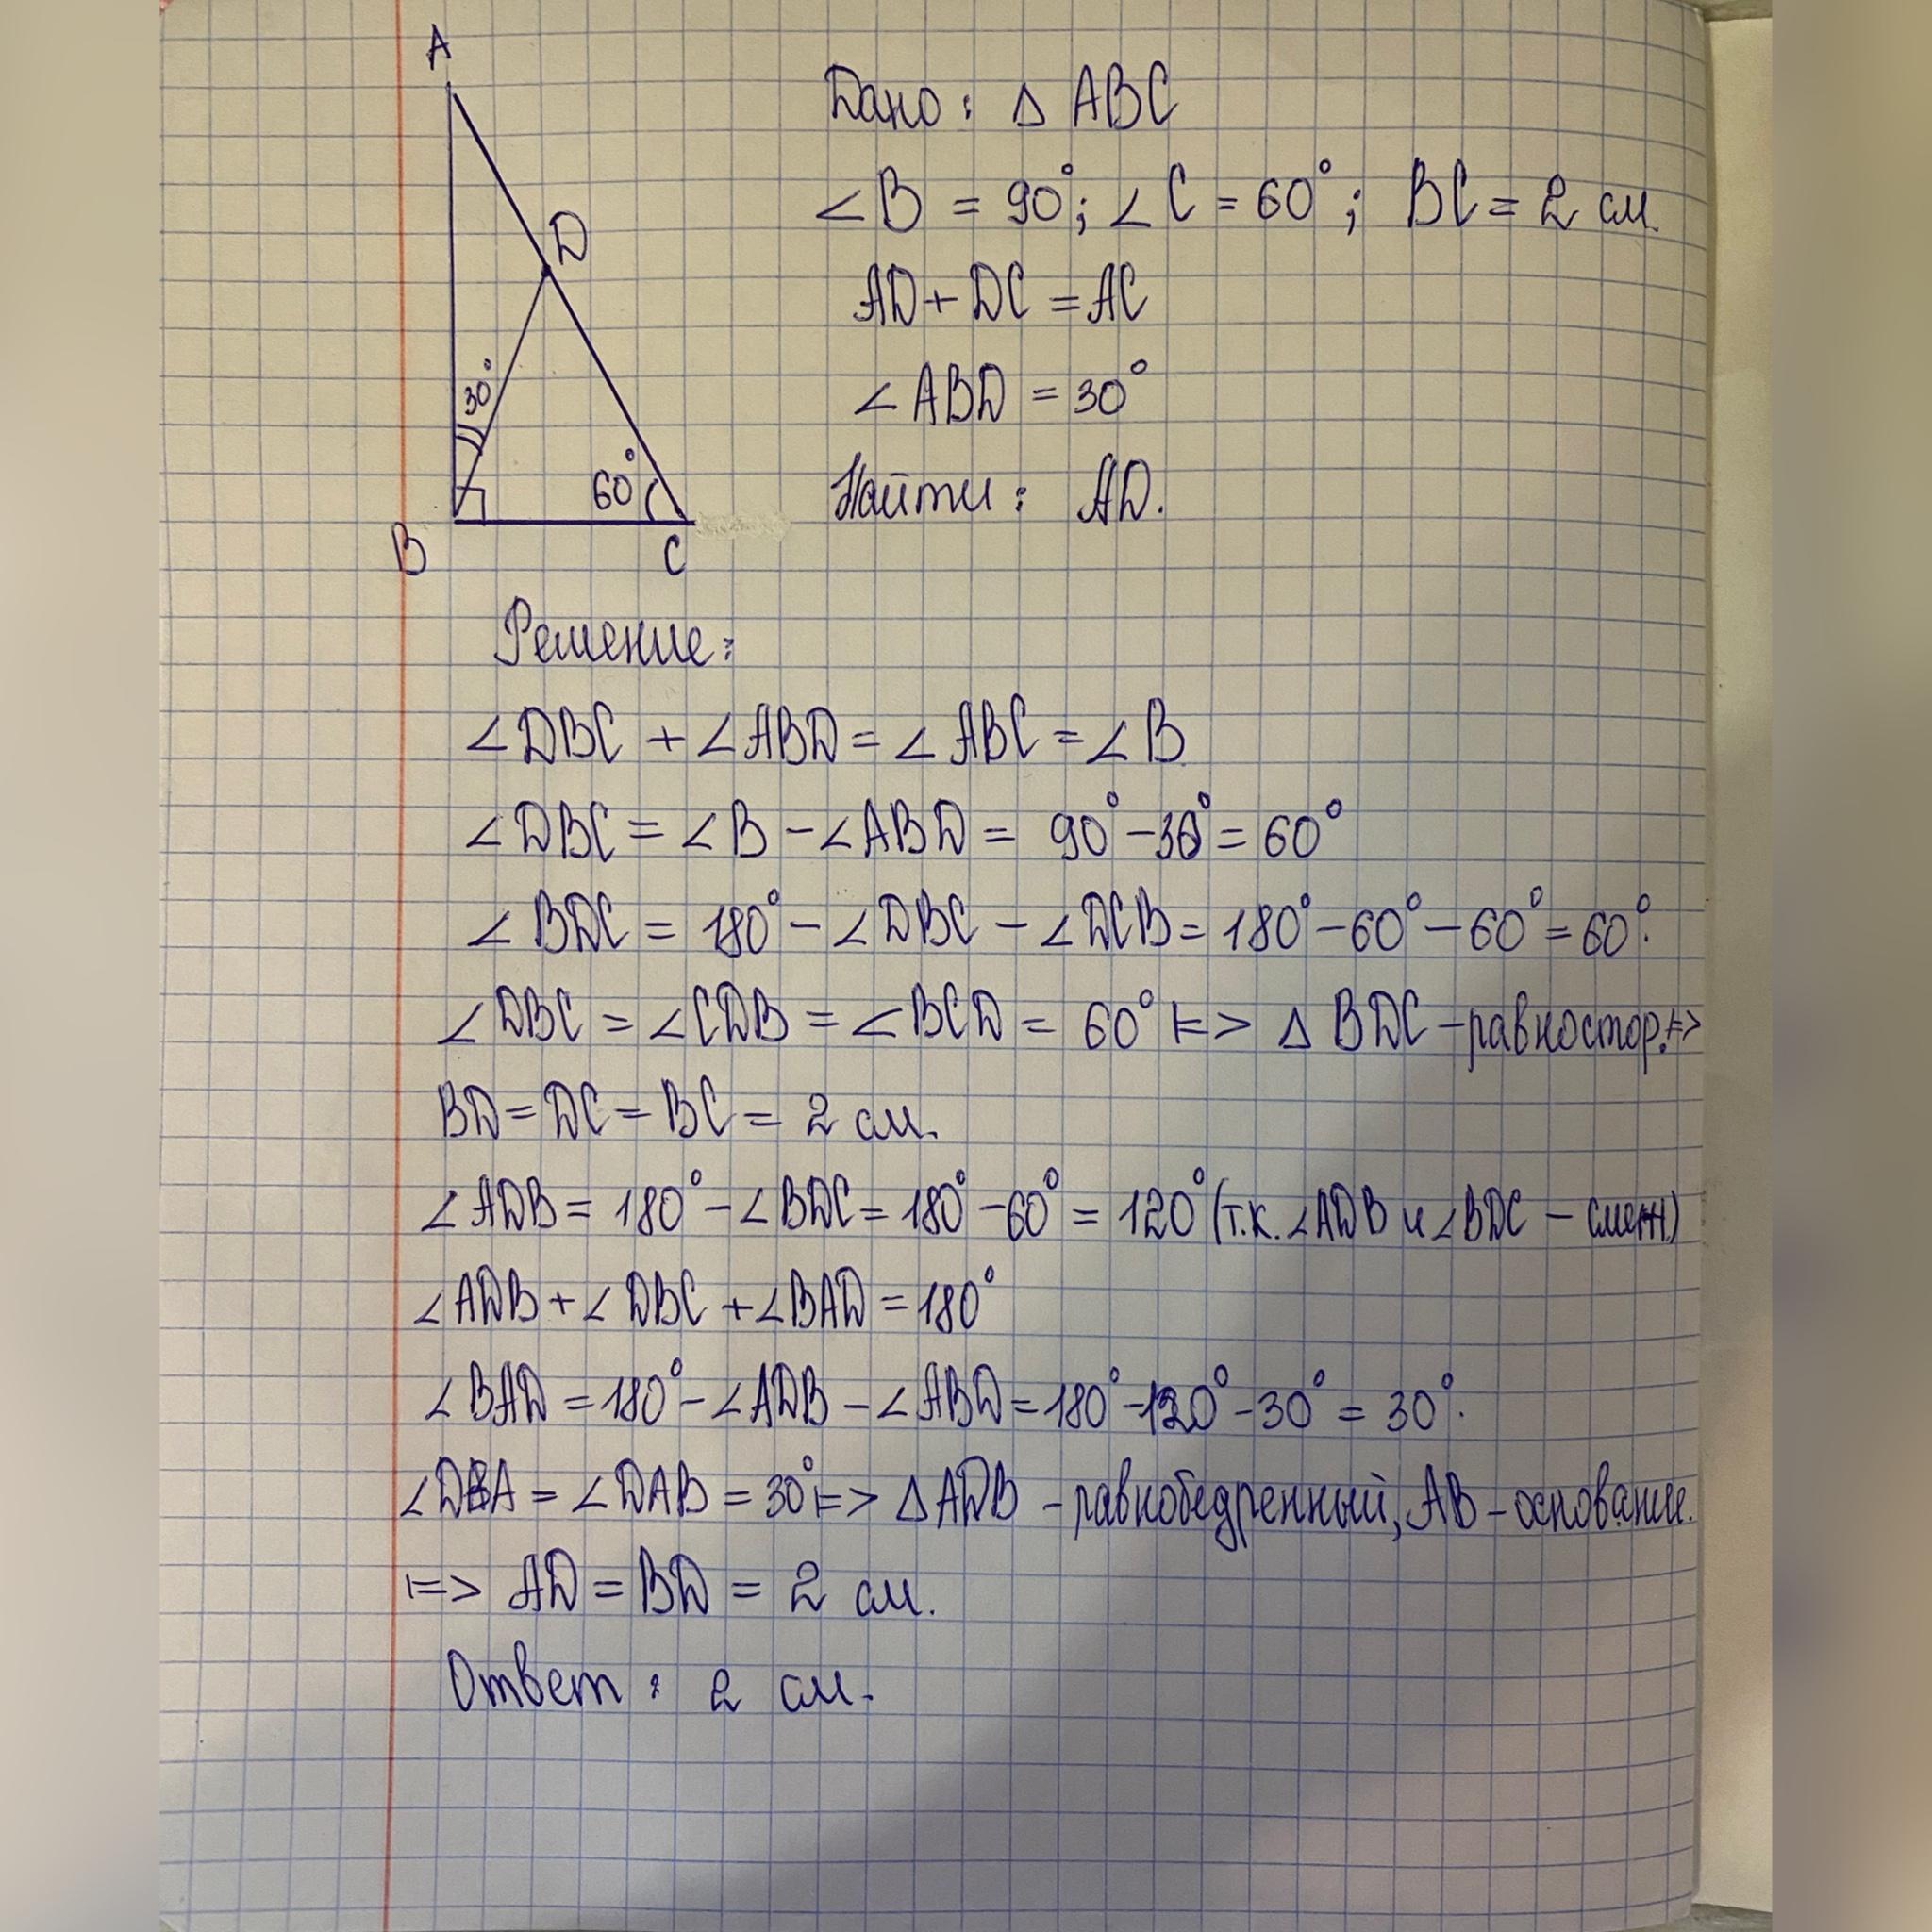 A
Дано: Δ ABC
∠B = 90°; ∠C = 60°; BC = 2 см.
D
AD + DC = AC
30°
∠ABD = 30°
60°
Найти: AD.
B
C
Решение:
∠DBC + ∠ABD = ∠ABC = ∠B
∠DBC = ∠B - ∠ABD = 90° - 30° = 60°
∠BDC = 180° - ∠DBC - ∠DCB = 180° - 60° - 60° = 60°.
∠DBC = ∠CDB = ∠BCD = 60° |=> Δ BDC - равностор. |=>
BD = DC = BC = 2 см.
∠ADB = 180° - ∠BDC = 180° - 60° = 120° (т.к. ∠ADB и ∠BDC - смежн.)
∠ADB + ∠DBC + ∠BAD = 180°
∠BAD = 180° - ∠ADB - ∠ABD = 180° - 120° - 30° = 30°.
∠DBA = ∠DAB = 30° |=> ΔADB - равнобедренный, AB - основание.
|=> AD = BD = 2 см.
Ответ: 2 см.